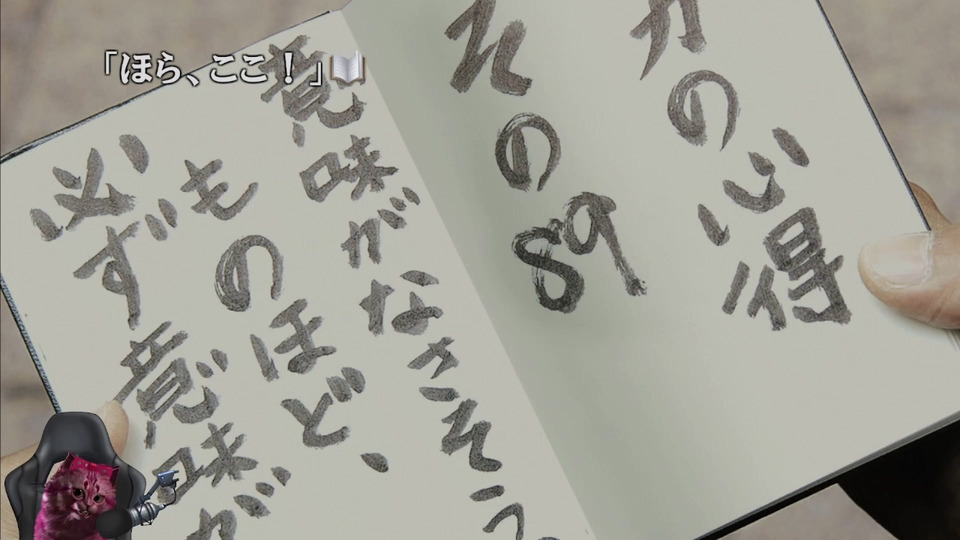 「ほら、ここ！」
の心得
その89
意味がなさそう
ものほど、
必ず意味が